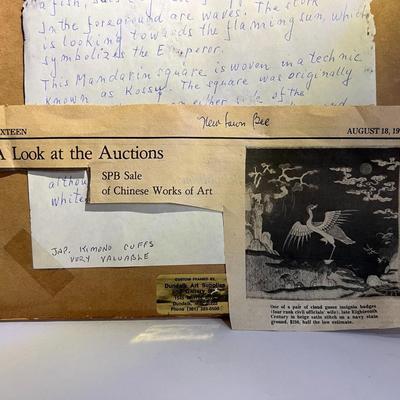 a fish,
In the foreground are waves. The stork
is looking towards the flaming sun, which
symbolizes the Emperor.
This Mandarin square is woven in a technic
Known as Kossu. The square was originally
either side of the
Newtown Bee
IXTEEN
AUGUST 18, 19
A Look at the Auctions
SPB Sale
of Chinese Works of Art
althou
white
JAP. KIMONO CUFFS
VERY VALUABLE
CUSTOM FRAMED BY
Dundalk Art Supplies
and Gallery
Dundalk,
Phone (301)
One of a pair of cloud goose insignia badges
(four rank civil officials' wife), late Eighteenth
Century in beige satin stitch on a navy stain
ground, $150, half the low estimate.